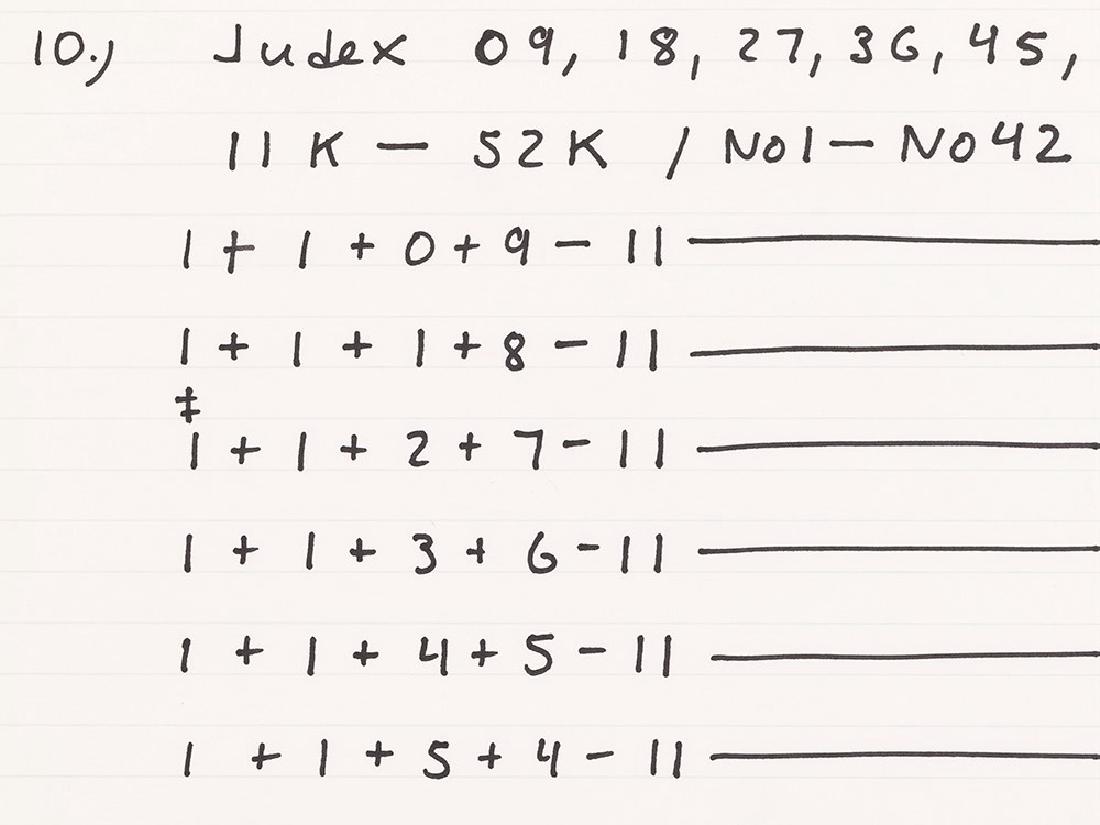 10.) Index 09, 18, 27, 36, 45,
11 K — 52 K / No 1 — No 42
1 + 1 + 0 + 9 — 11
1 + 1 + 1 + 8 — 11
‡
1 + 1 + 2 + 7 — 11
1 + 1 + 3 + 6 — 11
1 + 1 + 4 + 5 — 11
1 + 1 + 5 + 4 — 11